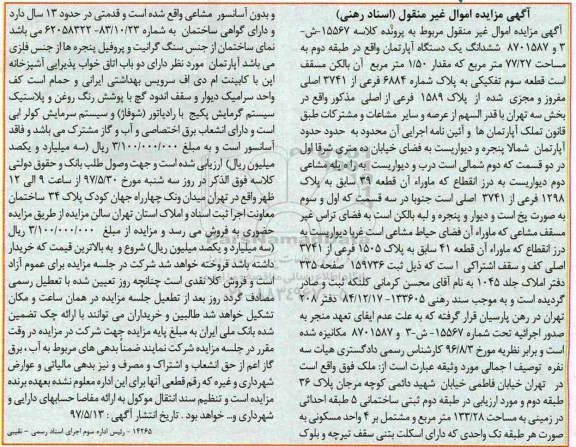 آگهی مزایده اموال غیر منقول (اسناد رهنی)
آگهی مزایده اموال غیر منقول مربوط به پرونده کلاسه ۱۵۵۶۷-ش-
۳ و ۸۷۰۱۵۸۷ ششدانگ یک دستگاه آپارتمان واقع در طبقه دوم به
مساحت ۷۷/۲۷ متر مربع که مقدار ۱/۵۰ متر مربع آن بالکن مسقف
است قطعه سوم تفکیکی به پلاک شماره ۶۸۸۴ فرعی از ۳۷۴۱ اصلی
مفروز و مجزی شده از پلاک ۱۵۸۹ فرعی از اصلی مذکور واقع در
بخش سه تهران با قدر السهم از عرصه و سایر مشاعات و مشترکات طبق
قانون تملک آپارتمان ها و آئین نامه اجرایی آن محدود به حدود حدود
آپارتمان شمالا پنجره و دیواریست به فضای خیابان ده متری شرقا اول
در دو قسمت که دوم شمالی است درب و دیواریست به راه پله مشاعی
دوم دیواریست به درز انقطاع که ماوراء آن قطعه ۳۹ سابق به پلاک
۱۲۹۸ فرعی از ۳۷۴۱ اصلی است جنوبا در سه قسمت که اول و سوم
به صورت پخ است و دیوار و پنجره و لبه بالکن است به فضای تراس غیر
مسقف مشاعی که ماوراء آن فضای حیاط مشاعی است غربا دیواریست به
درز انقطاع که ماوراء آن قطعه ۴۱ سابق به پلاک ۱۵۰۵ فرعی از ۳۷۴۱
اصلی کف و سقف اشتراکی است که ذیل ثبت ۱۵۹۷۳۶ صفحه ۳۳۵
دفتر املاک جلد ۱۰۴۵ به نام آقای محسن کرمانی کلنگه ثبت و صادر
گردیده است و به موجب سند رهنی ۱۳۳۶۰۵- ۸۴/۱۲/۱۷ دفتر ۲۰۸
تهران در رهن پارسیان قرار گرفته که به علت عدم ایفای تعهد منجر به
صدور اجرائیه تحت شماره ۱۵۵۶۷-ش-۳ و ۸۷۰۱۵۸۷ مکانیزه شده
است و برابر نظریه مورخ ۹۶/۸/۳ کارشناس رسمی دادگستری هیات سه
نفره توصیف اجمالی مورد وثیقه عبارت است از: ملک فوق واقع است
در تهران خیابان فاطمی خیابان شهید دائمی کوچه مرجان پلاک ۳۶
طبقه دوم و مورد ارزیابی در طبقه دوم ثبتی ساختمانی ۵ طبقه احداثی
در زمینی به مساحت ۱۳۳/۲۸ متر مربع و مشتمل بر ۴ واحد مسکونی به
صورت هر طبقه تک واحدی که دارای اسکلت بتنی سقف تیرچه و بلوک
و بدون آسانسور مشاعی واقع شده است و قدمتی در حدود ۱۳ سال دارد
و دارای گواهی ساختمان به شماره ۸۳/۱۰/۲۳-۶۲۰۵۸۳۲۲ می باشد
نمای ساختمان از جنس سنگ گرانیت و پروفیل پنجره ها از جنس فلزی
می باشد آپارتمان مورد نظر دارای دو باب اتاق خواب پذیرایی آشپزخانه
اپن با کابینت ام دی اف سرویس بهداشتی ایرانی و حمام است کف
واحد سرامیک دیوار و سقف اندود گچ با پوشش رنگ روغن و پلاستیک
سیستم گرمایش پکیج با رادیاتور (شوفاژ) و سیستم سرمایش کولر ابی
است و دارای انشعاب برق اختصاصی و آب و گاز مشترک می باشد و فاقد
آسانسور است و به مبلغ ۳/۱۰۰/۰۰۰/۰۰۰ ریال (سه میلیارد و یکصد
میلیون ریال) ارزیابی شده است و جهت وصول طلب بانک و حقوق دولتی
کلاسه فوق الذکر در روز سه شنبه مورخ ۹۷/۵/۳۰ از ساعت ۹ الی ۱۲
ظهر واقع در تهران میدان ونک چهارراه جهان کودک پلاک ۳۴ ساختمان
معاونت اجرا ثبت اسناد و املاک استان تهران سالن مزایده از طریق مزایده
حضوری به فروش می رسد و مزایده از مبلغ ۳/۱۰۰/۰۰۰/۰۰۰ ریال
(سه میلیارد و یکصد میلیون ریال) شروع و به بالاترین قیمت که خریدار
داشته باشد فروخته خواهد شد شرکت در جلسه مزایده برای عموم آزاد
است و فروش کلا نقدی است چنانچه روز تعیین شده با تعطیل رسمی
تصادف گردد روز بعد از تعطیل جلسه مزایده در همان ساعت و مکان
تشکیل خواهد شد طالبین و خریداران می توانند با ارائه چک تضمین
شده بانک ملی ایران به مبلغ پایه مزایده جهت شرکت در مزایده در وقت
مقرر در جلسه مزایده شرکت نمایند ضمناً بدهی های مربوط به آب، برق
گاز اعم از حق انشعاب و اشتراک و مصرف و نیز بدهی مالیاتی و عوارض
شهرداری و غیره که رقم قطعی آنها برای این اداره معلوم نشده بعهده برنده
مزایده است و تنظیم سند انتقال موکول به ارائه مفاصا حسابهای دارایی و
شهرداری و... خواهد بود . تاریخ انتشار آگهی : ۹۷/۵/۱۳
۱۴۲۶۵ - رئیس اداره سوم اجرای اسناد رسمی - نقیبی